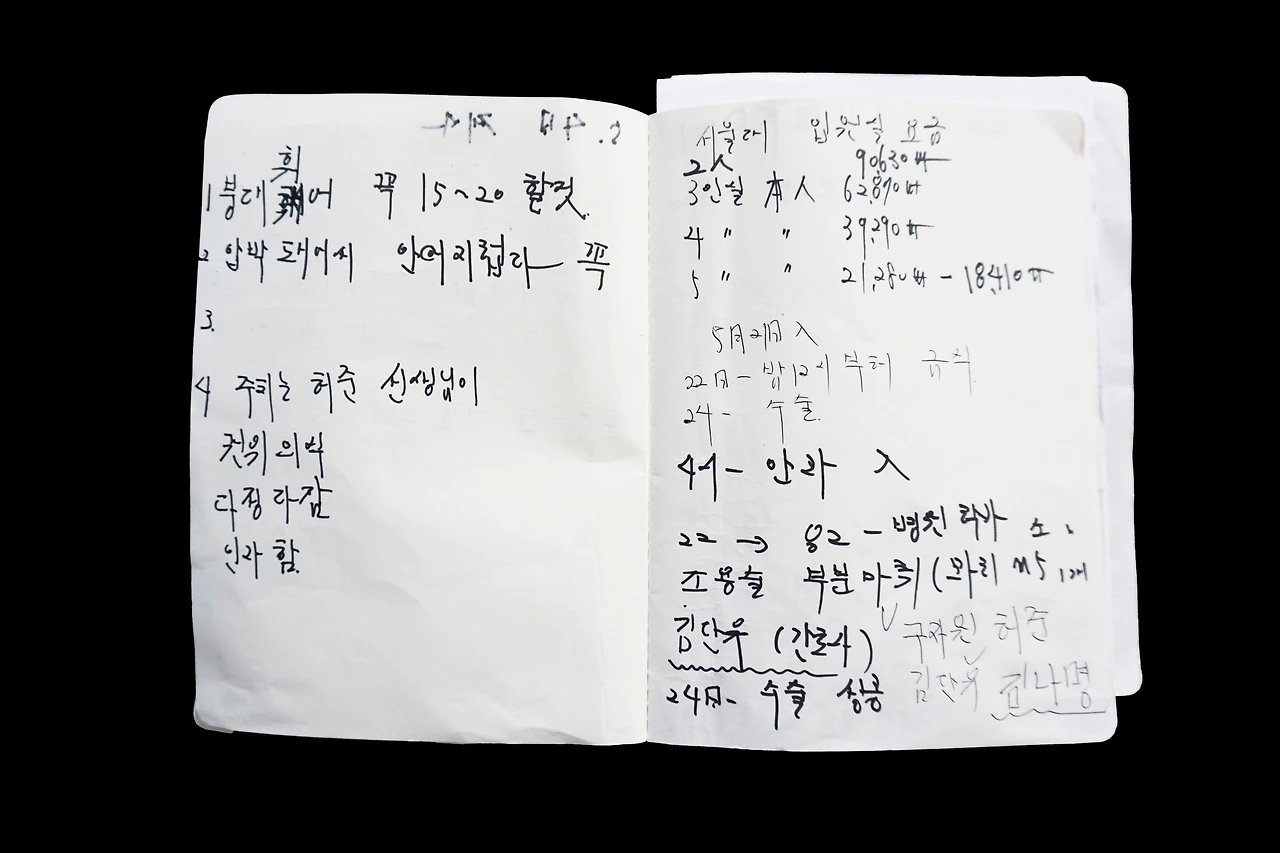 휘
1 붕대 어 꼭 15~20 할것.
2 압박 돼어서 안어지럽다 꼭
3.
4 주치는 허준 선생님이
권위 의식
다정 다감
인자 함.
서울대 입원실 요금
2人 90,630
3인실 本人 62,870
4 〃 〃 39,290
5 〃 〃 21,280 - 18,410
5月21日 入
22日 - 밤 12시 부터 금식
24 - 수술
4시 - 안과 入
22 →
조용술 부분
김단우 (간호사) 구자원 허준
24日 - 수술 김단우 김나명